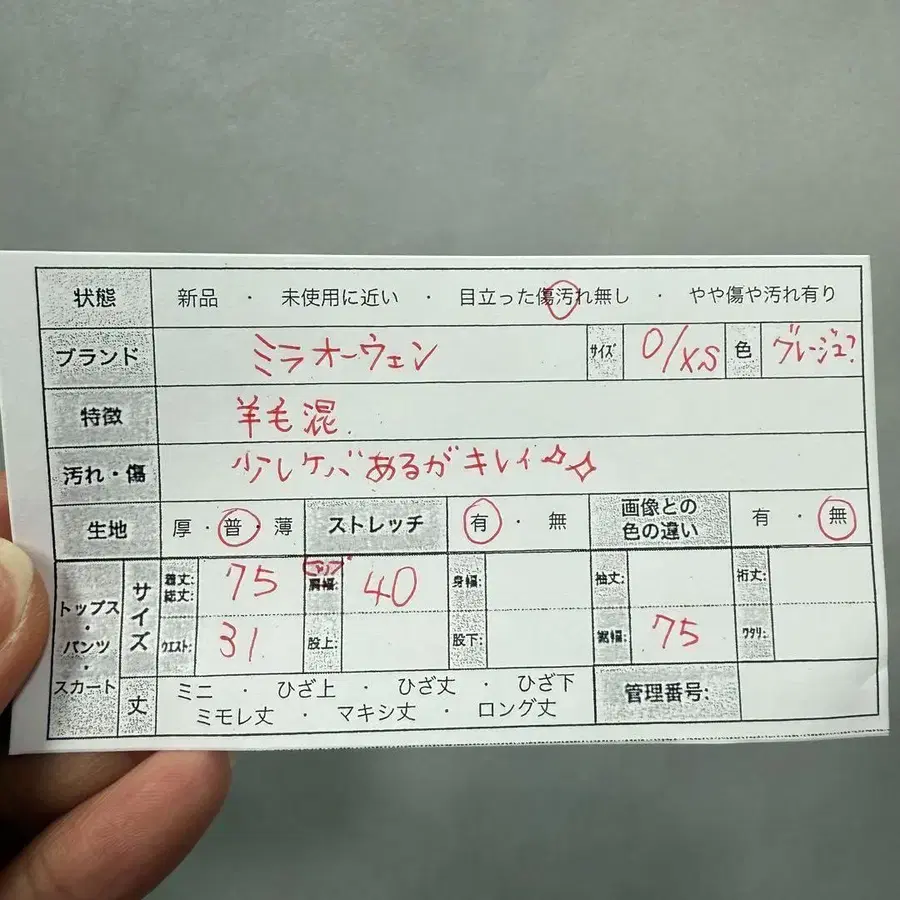 状態 新品 ・ 未使用に近い ・ 目立った傷汚れ無し ・ やや傷や汚れ有り
ブランド ミラオーウェン サイズ 0/XS 色 グレージュ?
特徴 羊毛混
汚れ・傷 少しケバあるがキレイ✧✧
生地 厚・普・薄 ストレッチ 有 ・ 無 画像との色の違い 有 ・ 無
トップス・パンツ・スカート サイズ 着丈:総丈: 75 肩幅: 40 身幅: 袖丈: 裄丈:
ウエスト: 31 股上: 股下: 裾幅: 75 ワタリ:
丈 ミニ ・ ひざ上 ・ ひざ丈 ・ ひざ下
ミモレ丈 ・ マキシ丈 ・ ロング丈 管理番号: